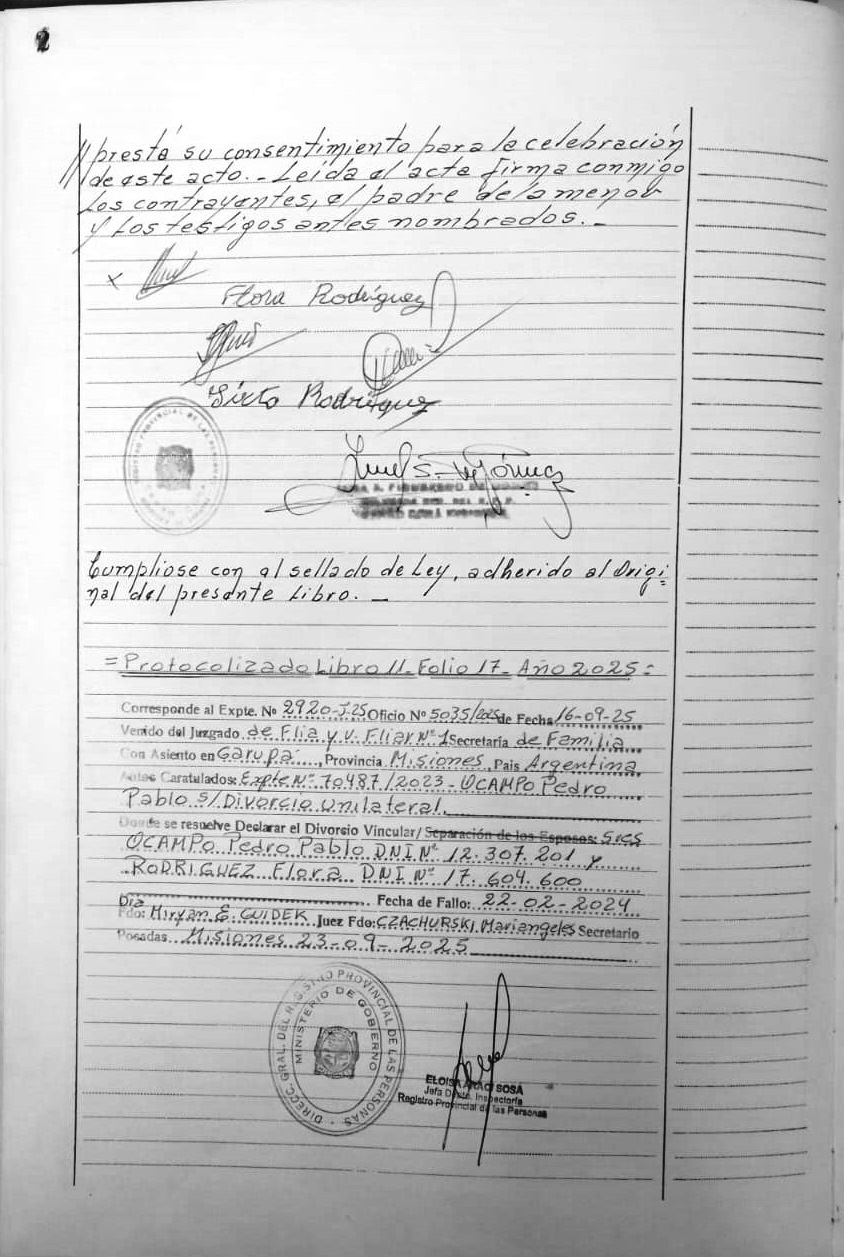 2
// presta su consentimiento para la celebración
de este acto.- Leída el acta firma conmigo
los contrayentes, el padre de la menor
y los testigos antes nombrados.-
x
Flora Rodriguez
Sixto Rodriguez
REGISTRO PROVINCIAL DE LAS PERSONAS
Cumpliose con el sellado de Ley, adherido al Origi-
nal del presente Libro.-
=Protocolizado Libro 11- Folio 17- Año 2025=
Corresponde al Expte. Nº 2920-J-25 Oficio Nº 5035/2025 de Fecha 16-09-25
Venido del Juzgado de Flia y V. Fliar Nº 1 Secretaria de Familia
Con Asiento en Garupá, Provincia Misiones, Pais Argentina
Autos Caratulados: Expte Nº 70487/2023 - OCAMPO Pedro
Pablo s/Divorcio Unilateral.
Donde se resuelve Declarar el Divorcio Vincular/ Separación de los Esposos: Sres
OCAMPO Pedro Pablo DNI Nº 12.307.201 y
RODRIGUEZ Flora DNI Nº 17.604.600
Fecha de Fallo: 22-02-2024
Dra
Fdo: Miryan E. GUIDEK Juez Fdo: CZACHURSKI, Mariangeles Secretario
Posadas Misiones 23-09-2025
DIRECC. GRAL. DEL REGISTRO PROVINCIAL DE LAS PERSONAS
MINISTERIO DE GOBIERNO
ELOISA ARACI SOSA
Jefa Dpto. Inspectoría
Registro Provincial de las Personas